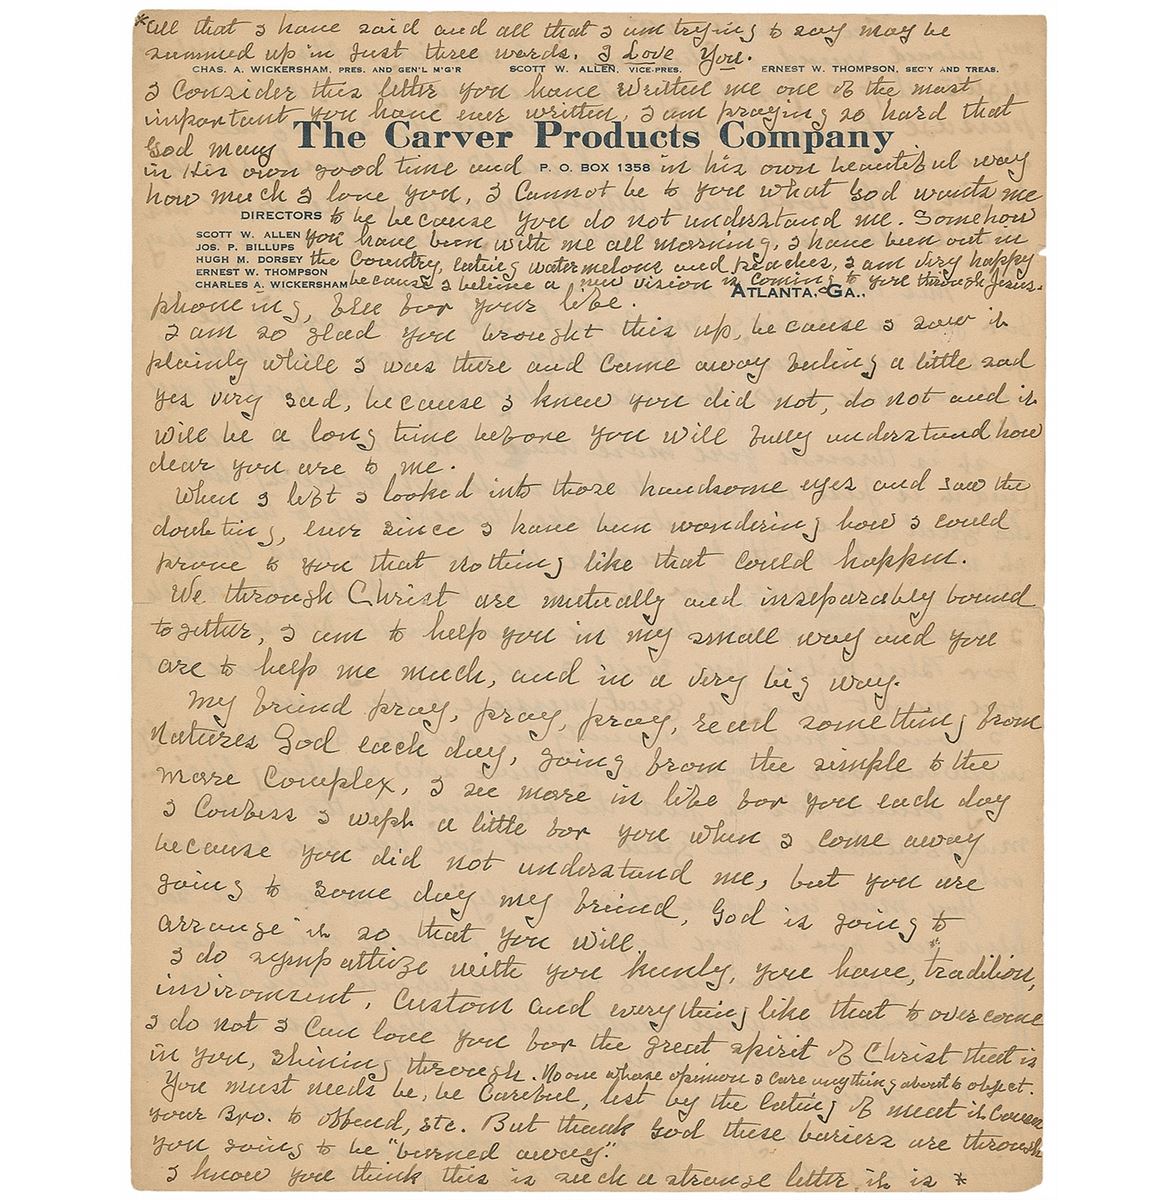 *all that I have said and all that I am trying to say may be
summed up in Just three words. I Love You.
CHAS. A. WICKERSHAM, PRES. AND GEN'L M'G'R SCOTT W. ALLEN, VICE-PRES. ERNEST W. THOMPSON, SEC'Y AND TREAS.
I Consider this letter you have written me one of the most
important you have ever written, I am praying so hard that
God many The Carver Products Company
in His own good time and P. O. BOX 1358 in his own beautiful way
how much I love you, I Cannot be to you what God wants me
DIRECTORS to be because you do not understand me. Somehow
SCOTT W. ALLEN you have been with me all morning, I have been out in
JOS. P. BILLUPS
HUGH M. DORSEY the Country, eating watermelons and peaches, I am very happy
ERNEST W. THOMPSON
CHARLES A. WICKERSHAM because I believe a new vision is coming to you through Jesus.
ATLANTA, GA.,
phoneing, else for your life.
I am so glad you brought this up, because I saw it
plainly while I was there and came away feeling a little sad
yes very sad, because I knew you did not, do not and it
will be a long time before you will fully understand how
dear you are to me.
When I left I looked into those handsome eyes and saw the
doubting, ever since I have been wondering how I could
prove to you that nothing like that could happen.
We through Christ are mutually and inseparably bound
together, I am to help you in my small way and you
are to help me much, and in a very big way.
My friend pray, pray, pray, read something from
Natures God each day, going from the simple to the
more Complex, I see more in life for you each day
I Confess I weph a little for you when I come away
because you did not understand me, but you are
going to some day my friend, God is going to
arrange it so that you will.
I do sympathize with you keenly, you have, tradition,
invironsent, Custom and everything like that to overcome
I do not I can love you for the great spirit of Christ that is
in you, shining through. No one whose opinion I care anything about to object.
You must needs be, be Careful, lest by the eating of meat it Cause
your Bro. to offend, etc. But thank God these bariers are through
you going to be "burned away".
I know you think this is such a strange letter it is *